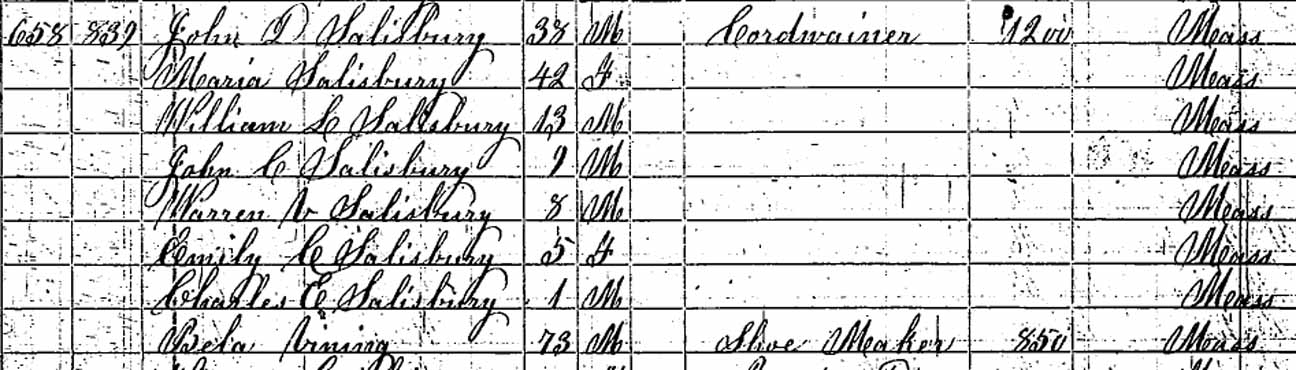 658 839 John D Salisbury 38 M Cordwainer 1200 Mass
Maria Salisbury 42 F Mass
William L Salisbury 13 M Mass
John C Salisbury 9 M Mass
Warren V Salisbury 8 M Mass
Emily C Salisbury 5 F Mass
Charles E Salisbury 1 M Mass
Bela Vining 73 M Shoe Maker 850 Mass